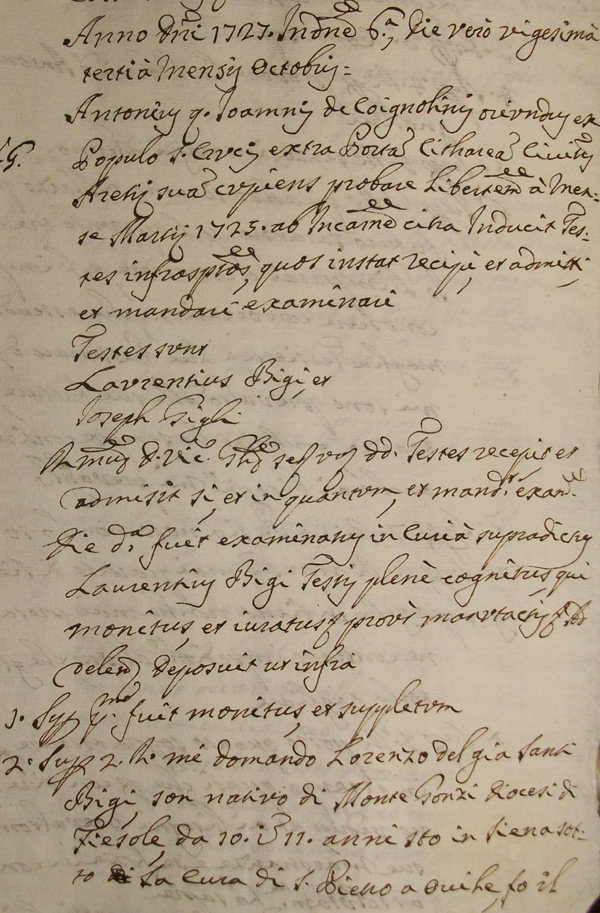 Anno dñi 1727. Indne 6.a, die verò vigesimâ
tertiâ Mensis Octobris=
Antonius q. Joannis de Coignolinis oriundus ex
Populo S. Crucis extra Porta Citharea Civitis
Aretij sua cupiens probare Libertem à Men-
se Martij 1725. ab Incarne citra Inducit Tes-
tes infrasptos, quos instat recipi, et admitti,
et mandari examinari
Testes sunt
Laurentius Bigi, et
Joseph Gigli
R.mus D. Vic. Glis dd. Testes recepit et
admisit si, et in quantum, et mand.t exam.
Die d.a fuit examinatus in Curiâ supradictus
Laurentius Bigi Testis plenè cognitus qui
monitus, et iuratus prout
delend deposuit ut infrà
1. Sup p.mo fuit monitus, et suppletum
2. Sup 2. R. mè domando Lorenzo del q.a Santi
Bigi, son nativo di Monte Gonzi Diocesi di
Fiesole, da 10. i 11. anni sto in Siena sot-
to la Cura di S. Pietro a Ovile, fo il